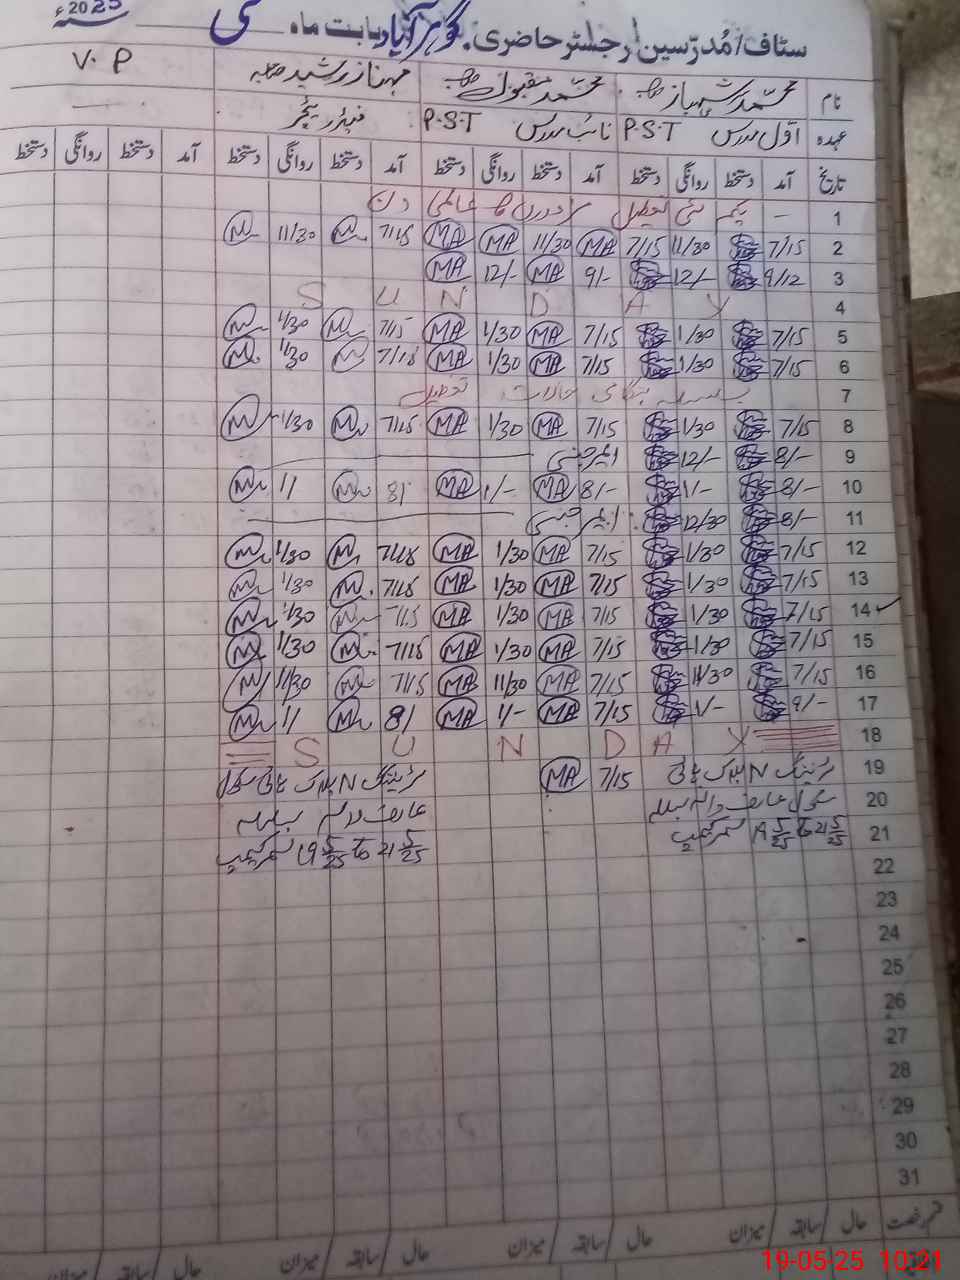 سٹاف/مُدرّسین رجسٹر حاضری گوہر آباد بابت ماہ مئی 2025ء
نام محمّد شہباز صاحب محمّد مقبول صاحب مہناز رشید صاحبہ V.P
عہدہ اوّل مدرس P.S.T نائب مدرس P.S.T
تاریخ آمد دستخط روانگی دستخط آمد دستخط روانگی دستخط آمد دستخط روانگی دستخط آمد دستخط روانگی دستخط
1 — یکم مئی تعطیل مزدوروں کا عالمی دن
2 7/15 11/30 7/15 MA 11/30 MA MA 7/15 11/30
3 9/12 12/- 9/- MA 12/- MA
4 S U N D A Y
5 7/15 1/30 7/15 MA 1/30 MA 7/15 1/30
6 7/15 1/30 7/15 MA 1/30 MA 7/15 1/30
7 بسلسلہ ہنگامی حالات تعطیل
8 7/15 1/30 7/15 MA 1/30 MA 7/15 1/30
9 8/- 12/- ایمرجنسی
10 8/- 1/- 8/- MA 1/- MA 8/ 1/
11 8/- 12/30 ایمرجنسی
12 7/15 1/30 7/15 MA 1/30 MA 7/15 1/30
13 7/15 1/30 7/15 MA 1/30 MA 7/15 1/30
14 ✓ 7/15 1/30 7/15 MA 1/30 MA 7/15 1/30
15 7/15 1/30 7/15 MA 1/30 MA 7/15 1/30
16 7/15 11/30 7/15 MA 11/30 MA 7/15 11/30
17 9/- 1/- 7/15 MA 1/- MA 8/ 1/
18 S U N D A Y
19 7/15 MA
20 عارف والہ بسلسلہ عارف والہ بسلسلہ
21 سمر کیمپ 19 5/25 to 21 5/25 سمر کیمپ 19 5/25 to 21 5/25
22
23
24
25
26
27
28
29
30
31
حال سابقہ میزان حال سابقہ میزان
حال سابقہ میزان حال سابقہ میزان
19-05-25 10:21